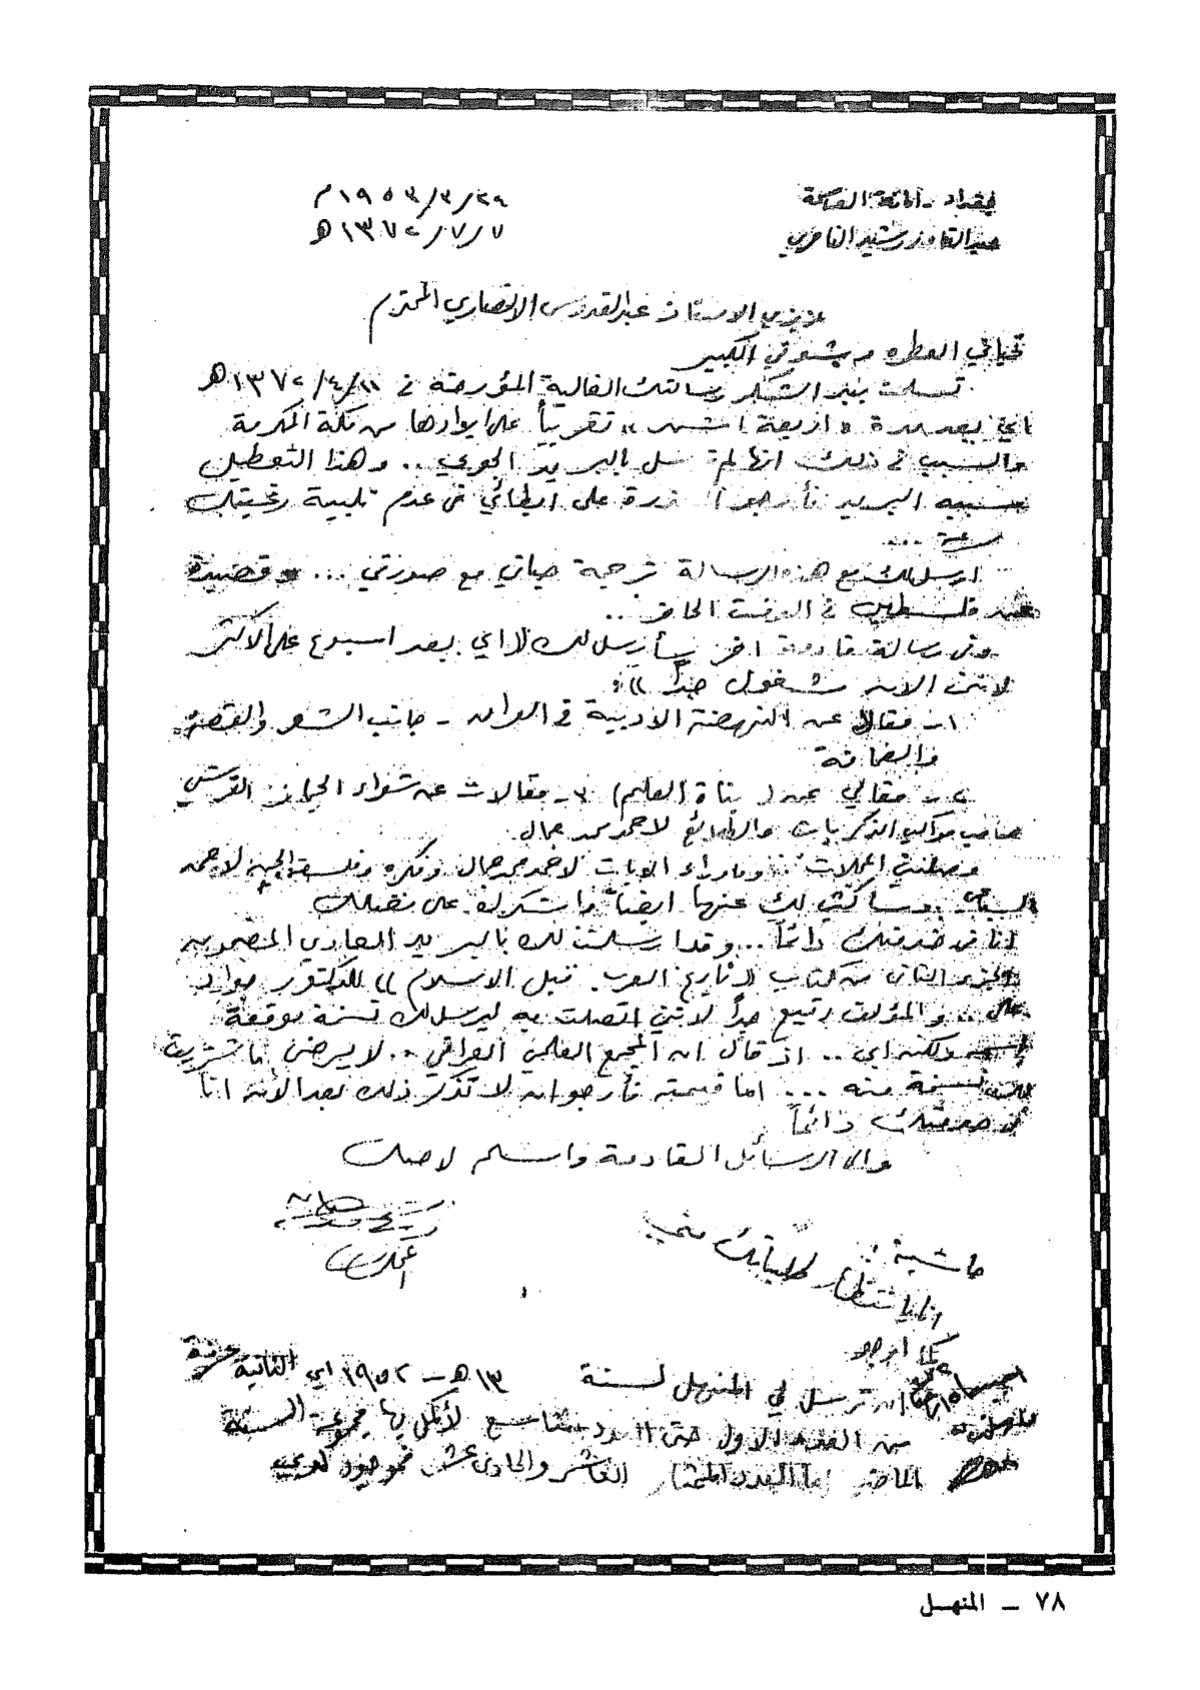 بغداد - امانة العاصمة
عبدالقادر رشيد الناصري
١٩٥٣/٣/٢٩م
١٣٧٢/٧/٧ هـ
عزيزي الاستاذ عبدالقدوس الانصاري المحترم
تحياتي العطره وشوقي الكبير
تسلمت بيد الشكر رسالتك الغالية المؤرخة في ١٣٧٢/٤/١١ هـ
اي بعد مدة «اربعة اشهر» تقريباً على ايرادها من مكة المكرمة
والسبب في ذلك انها لم ترسل بالبريد الجوي .. وهذا التعطيل
سببه البريد فأرجو المعذرة على ابطائي في عدم تلبية رغبتك
بسرعة ...
ارسل لك مع هذه الرسالة ترجمة حياتي مع صورتي ... وقصيدة
عن فلسطين في الوقت الحاضر ..
وفي رسالة قادمة اخرى سأرسل لك ((اي بعد اسبوع على الاكثر
لانني الان مشغول جداً)):
١- مقالا عن النهضة الادبية في العراق - جانب الشعر والقصة
والصحافة
٢- مقالي عن (بناة العلم) ٣- مقالات عن شعراء الحجاز القرشي
صاحب مواكب الذكريات والطلائع لاحمد محمد جمال
وصلتني المجلات .. وماوراء الايات لاحمد محمد جمال وفكره وفلسفة الجن لاحمد
السباعي وسأكتب لك عنها ايضاً واشكرك على تفضلك
انا في خدمتك دائماً ... وقد ارسلت لك بالبريد العادي المضمون
الجزء الثاني من كتاب ((تاريخ العرب قبل الاسلام)) للدكتور جواد
علي .. والمؤلف رقيع جداً لانني اتصلت به ليرسل لك نسخة موقعة
ولكنه ابى .. اذ قال ان المجمع العلمي العراقي .. لا يرضى فاشتريت
لك نسخة منه ... اما قيمته فأرجو ان لا تذكر ذلك بعد الان انا
في خدمتك دائماً
والى الرسائل القادمة واسلم لاخيك
المخلص
حاشية :
انا بانتظار كتاباتك
كما ارجو
ان ترسل لي المنهل لسنة ١٣ هـ - ١٩٥٢ اي الثانية عشرة
من العدد الاول حتى العدد التاسع لأكمل بها مجموعة السنة
الماضية اما العدد الممتاز العاشر والحادي عشر فموجود لدي
٧٨ - المنهل